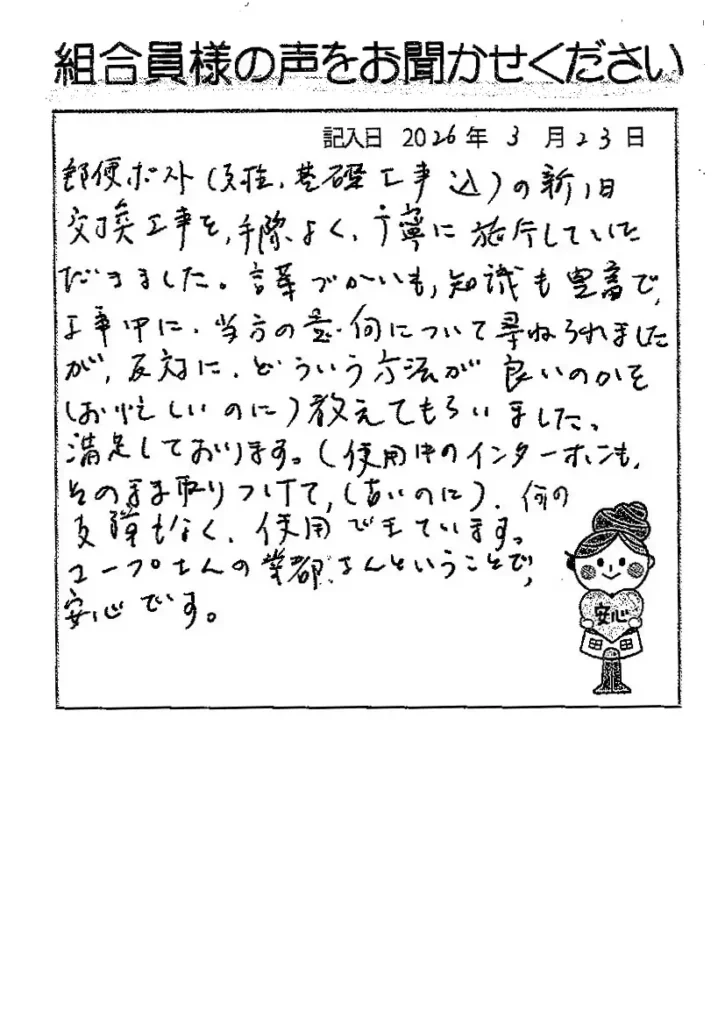 組合員様の声をお聞かせください
記入日 2026年 3月23日
郵便ポスト(支柱、基礎工事込)の新旧
交換工事を、手際よく、丁寧に施行していた
だきました。言葉づかいも、知識も豊富で、
工事中に、当方の意向について尋ねられました
が、反対に、どういう方法が良いのかを
(お忙しいのに)教えてもらいました。
満足しております。(使用中のインターホンも、
そのまま取りつけて、(古いのに)、何の
支障もなく、使用できています。
コープさんの業者さんということで、
安心です。
安心